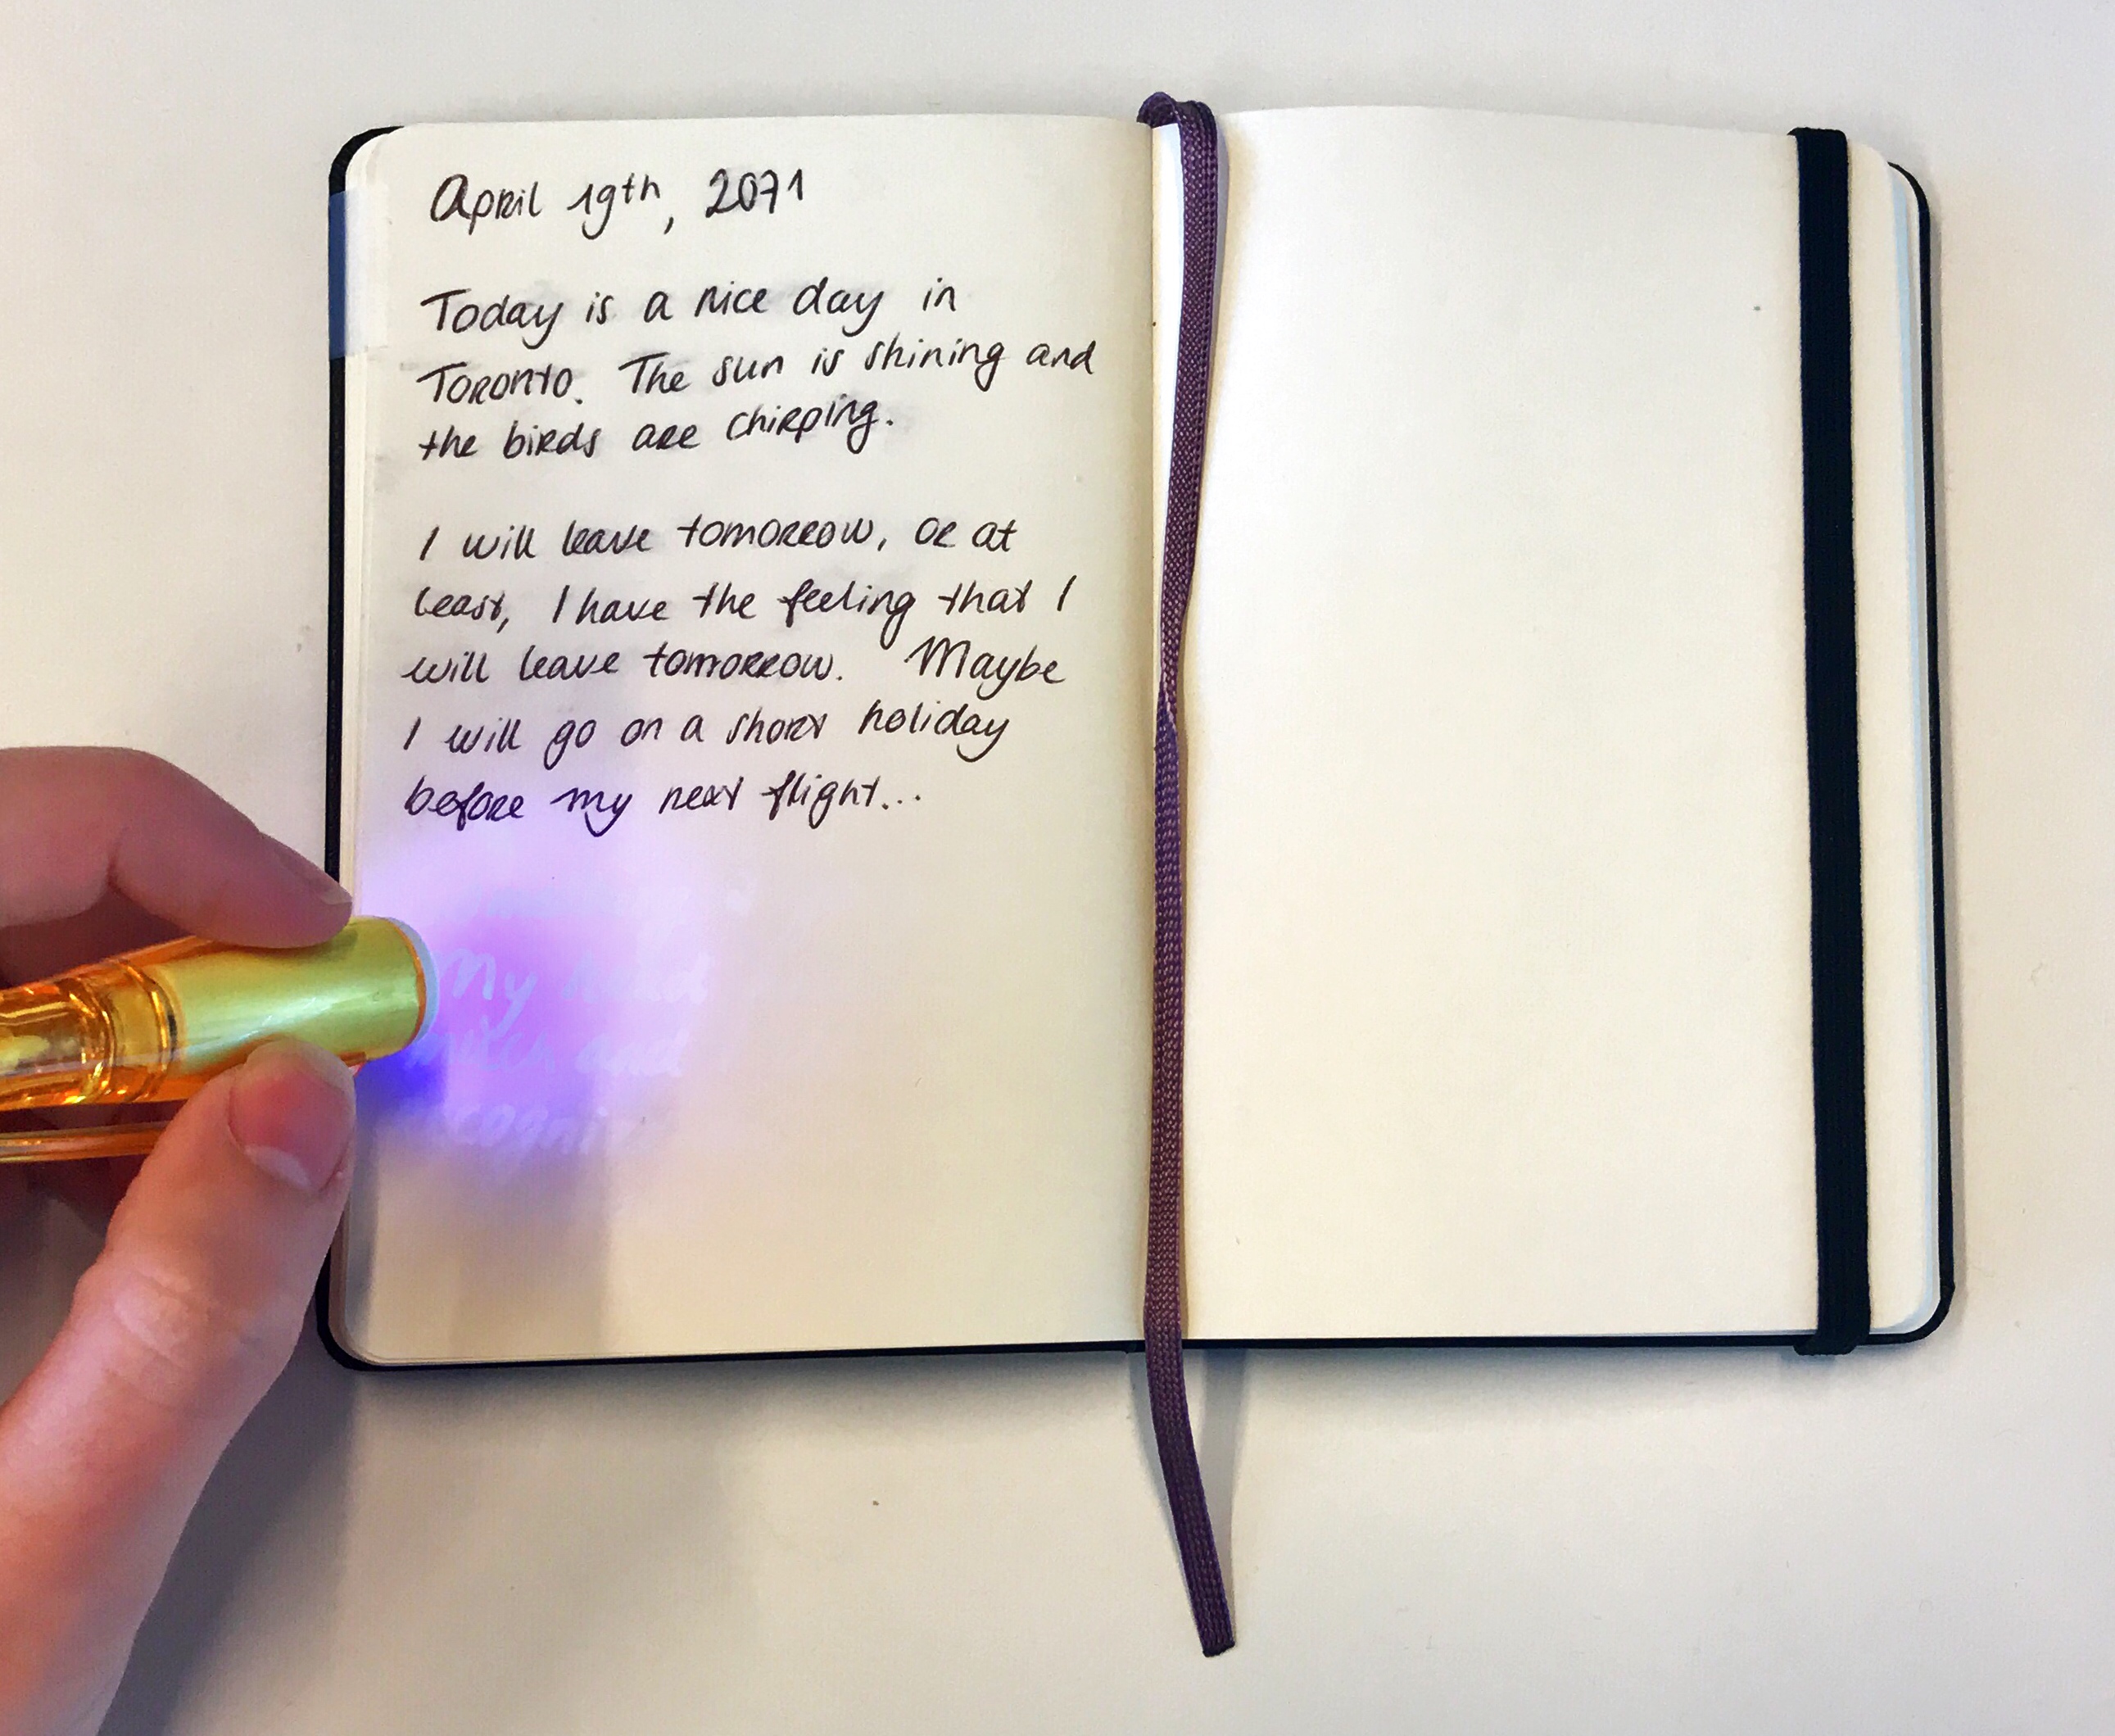 April 19th, 2071
Today is a nice day in
Toronto. The sun is shining and
the birds are chirping.
I will leave tomorrow, or at
least, I have the feeling that I
will leave tomorrow. Maybe
I will go on a short holiday
before my next flight...
My
and